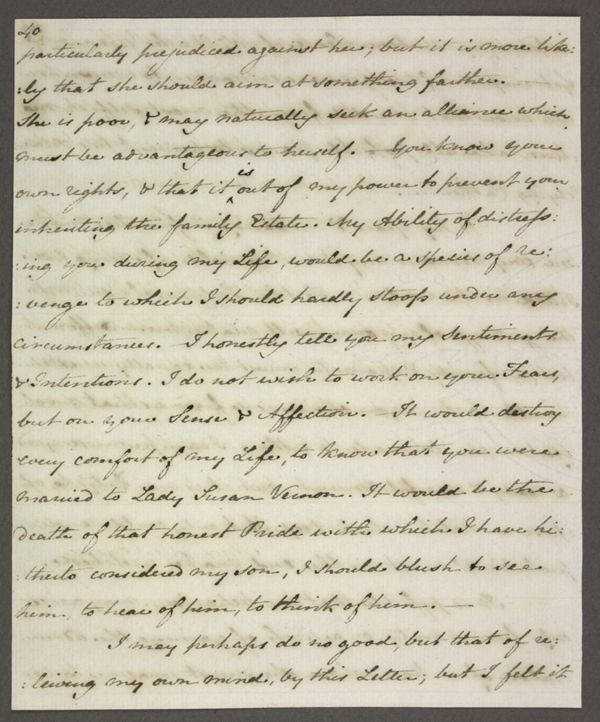 40
particularly prejudiced against her; but it is more like:
:ly that she should aim at something farther.
She is poor, & may naturally seek an alliance which
must be advantageous to herself. — You know your
own rights, & that it is out of my power to prevent your
inheriting the family Estate. My Ability of distress:
:ing you during my Life, would be a species of re:
:venge to which I should hardly stoop under any
circumstances. — I honestly tell you my Sentiments
& Intentions. I do not wish to work on your Fears,
but on your Sense & Affection. — It would destroy
every comfort of my Life, to know that you were
married to Lady Susan Vernon. It would be the
death of that honest Pride with which I have hi:
:therto considered my son, I should blush to see
him, to hear of him, to think of him. —
I may perhaps do no good, but that of re:
:leiving my own mind, by this Letter; but I felt it